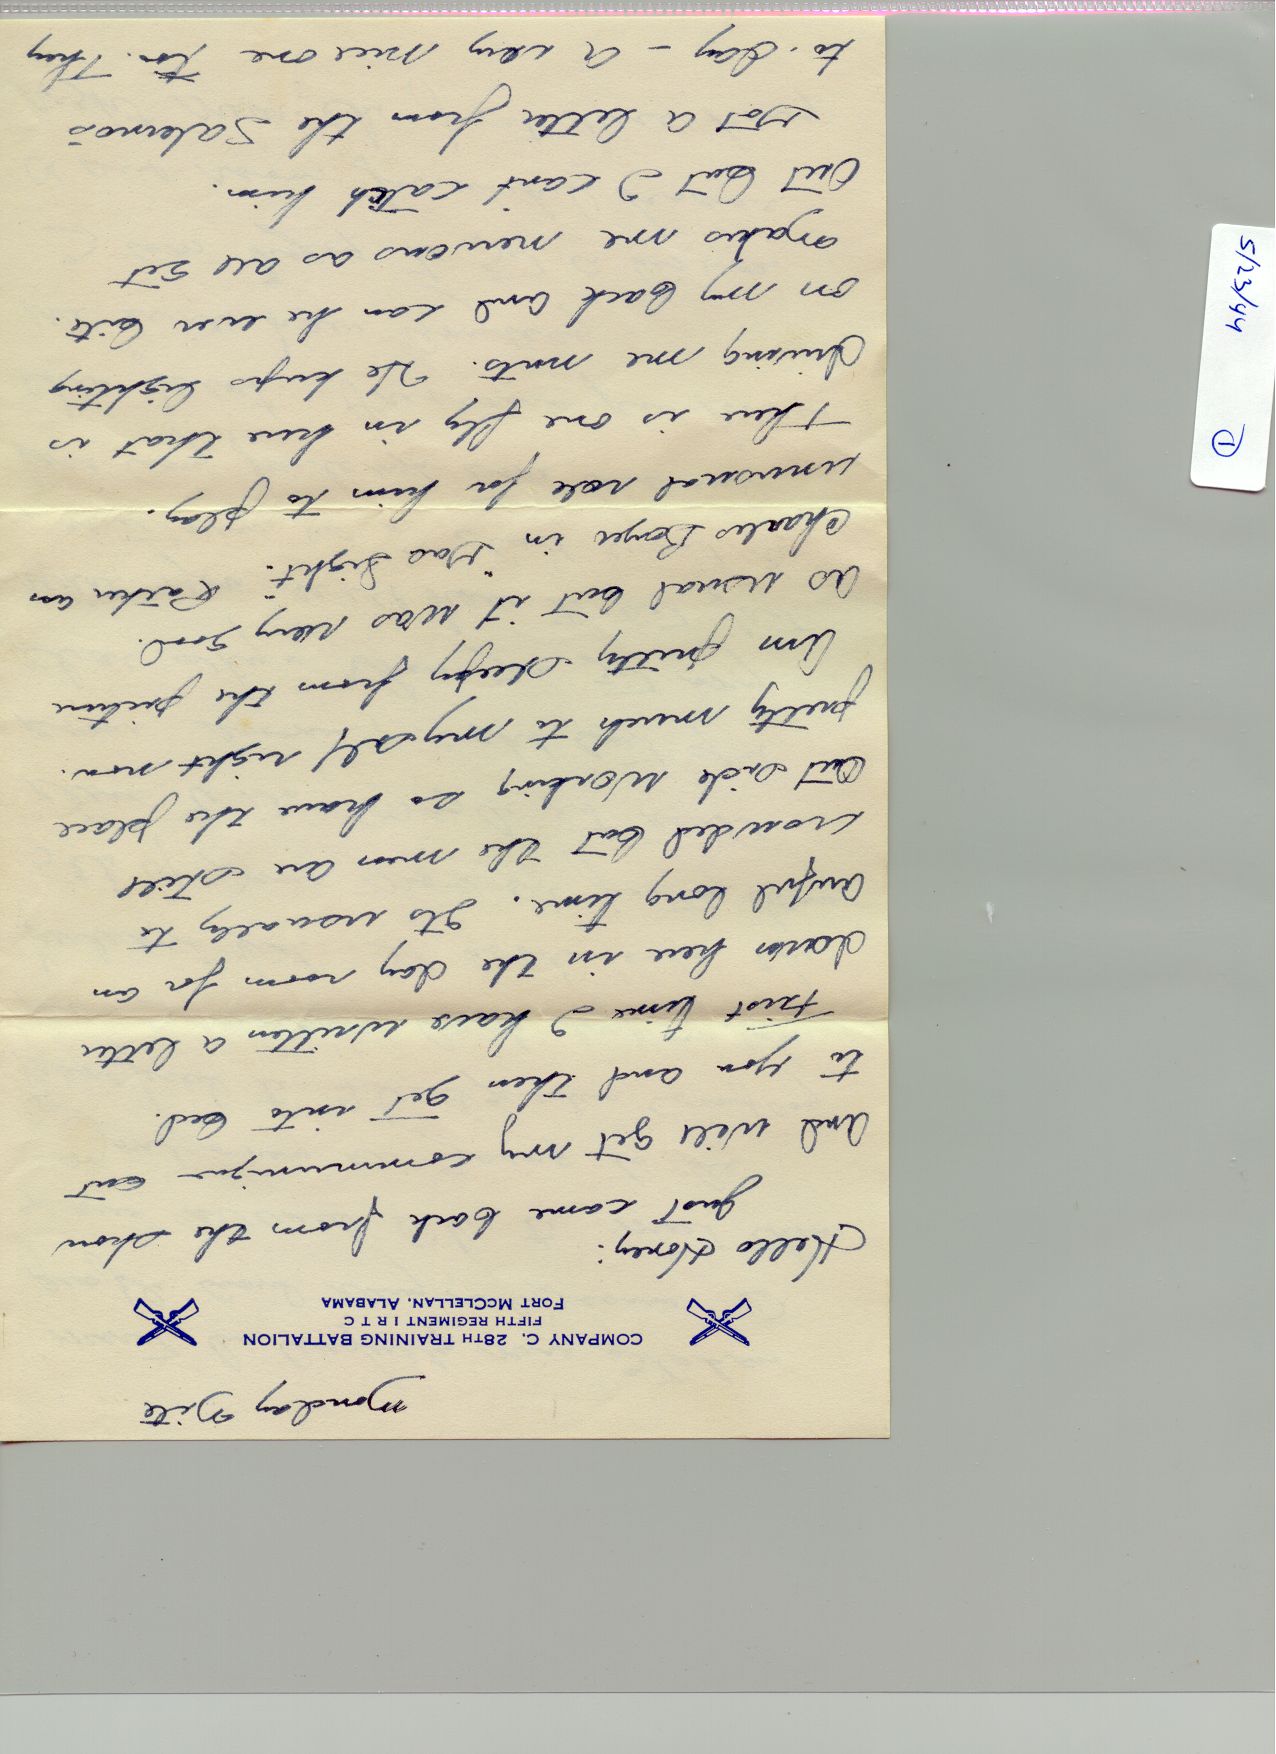 Monday Nite
COMPANY C. 28TH TRAINING BATTALION
FIFTH REGIMENT I R T C
FORT MCCLELLAN, ALABAMA
Hello Honey:
Just came back from the show
and will get my communique out
to you and then get into bed.
First time I have written a letter
down here in the day room for an
awful long time. Its usually to
crowded but the men are still
out side working so have the place
pretty much to myself right now.
Am pretty sleepy from the picture
as usual but it was very good.
Charles Boyer in "Gas Light". Rather an
unusual role for him to play.
There is one fly in here that is
driving me nuts. He keeps lighting
on my back and can he ever bite.
Makes me nervous as all get
out but I cant catch him.
Got a letter from the Salernos
to-day - a very nice one too. They
5/23/44
1